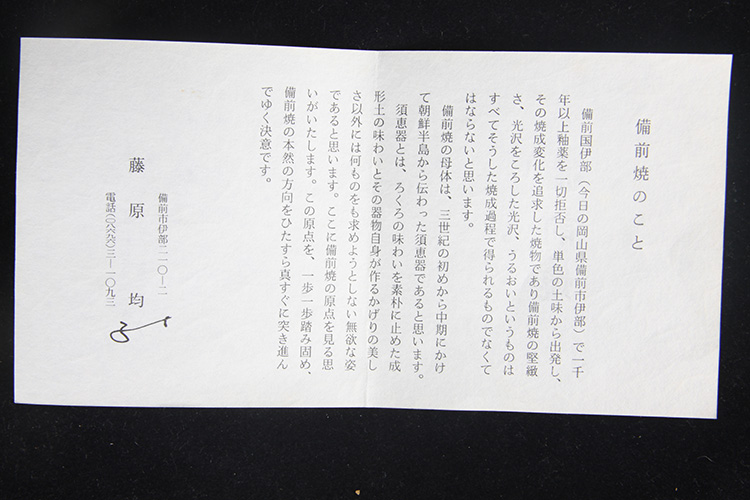 備前焼のこと
備前国伊部（今日の岡山県備前市伊部）で一千
年以上釉薬を一切拒否し、単色の土味から出発し、
その焼成変化を追求した焼物であり備前焼の堅緻
さ、光沢をころした光沢、うるおいというものは
すべてそうした焼成過程で得られるものでなくて
はならないと思います。
備前焼の母体は、三世紀の初めから中期にかけ
て朝鮮半島から伝わった須恵器であると思います。
須恵器とは、ろくろの味わいを素朴に止めた成
形土の味わいとその器物自身が作るかげりの美し
さ以外には何ものをも求めようとしない無欲な姿
であると思います。ここに備前焼の原点を見る思
いがいたします。この原点を、一歩一歩踏み固め、
備前焼の本然の方向をひたすら真すぐに突き進ん
でゆく決意です。
藤原 均
備前市伊部二一〇－二
電話（〇八六九六）三－一〇九三